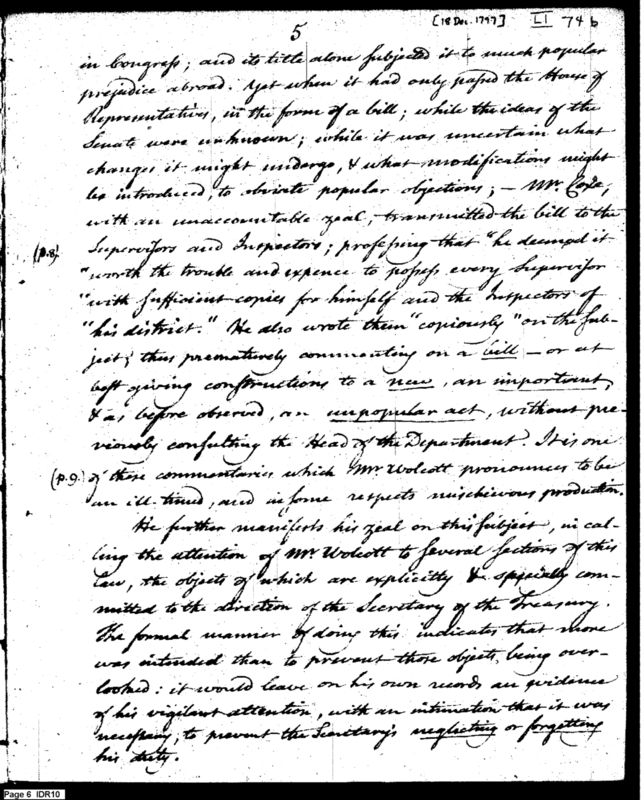 5
[18 Dec. 1797] LI 74 b
in Congress; and its title alone subjected it to much popular
prejudice abroad. Yet when it had only passed the House of
Representatives, in the form of a bill; while the ideas of the
Senate were unknown; while it was uncertain what
changes it might undergo, & what modifications might
be introduced, to obviate popular objections; — Mr. Coxe,
with an unaccountable zeal, transmitted the bill to the
Supervisors and Inspectors; professing that "he deemed it
(p.8) "worth the trouble and expence to possess every Supervisor
"with sufficient copies for himself and the Inspectors of
"his district." He also wrote them "copiously" on the sub-
ject; thus prematurely commenting on a bill — or at
best giving constructions to a new, an important,
& as before observed, an unpopular act, without pre-
viously consulting the Head of the Department. It is one
(p.9.) of these commentaries which Mr. Wolcott pronounces to be
an ill-timed, and in some respects mischievous production.
He further manifests his zeal on this subject, in cal-
ling the attention of Mr. Wolcott to several sections of this
Law, the objects of which are explicitly & specially com-
mitted to the direction of the Secretary of the Treasury.
The formal manner of doing this indicates that more
was intended than to prevent those objects being over-
looked: it would leave on his own records an evidence
of his vigilant attention, with an intimation that it was
necessary, to prevent the Secretary's neglecting or forgetting
his duty.
Page 6 IDR10